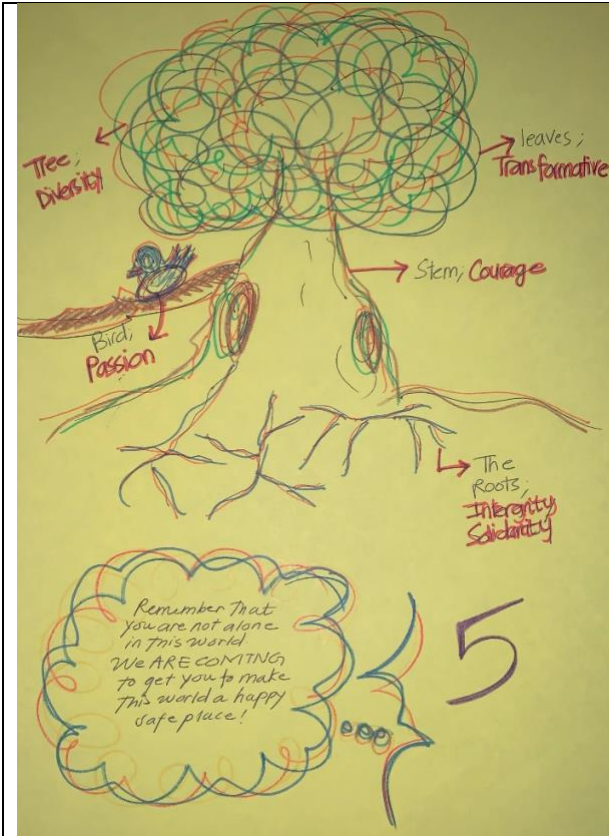 Tree;
Diversity
leaves;
Transformative
Stem; Courage
Bird;
Passion
The
Roots;
Intergrity
Solidarity
Remember That
you are not alone
in This world.
We ARE COMING
to get you to make
This world a happy
safe place!
5